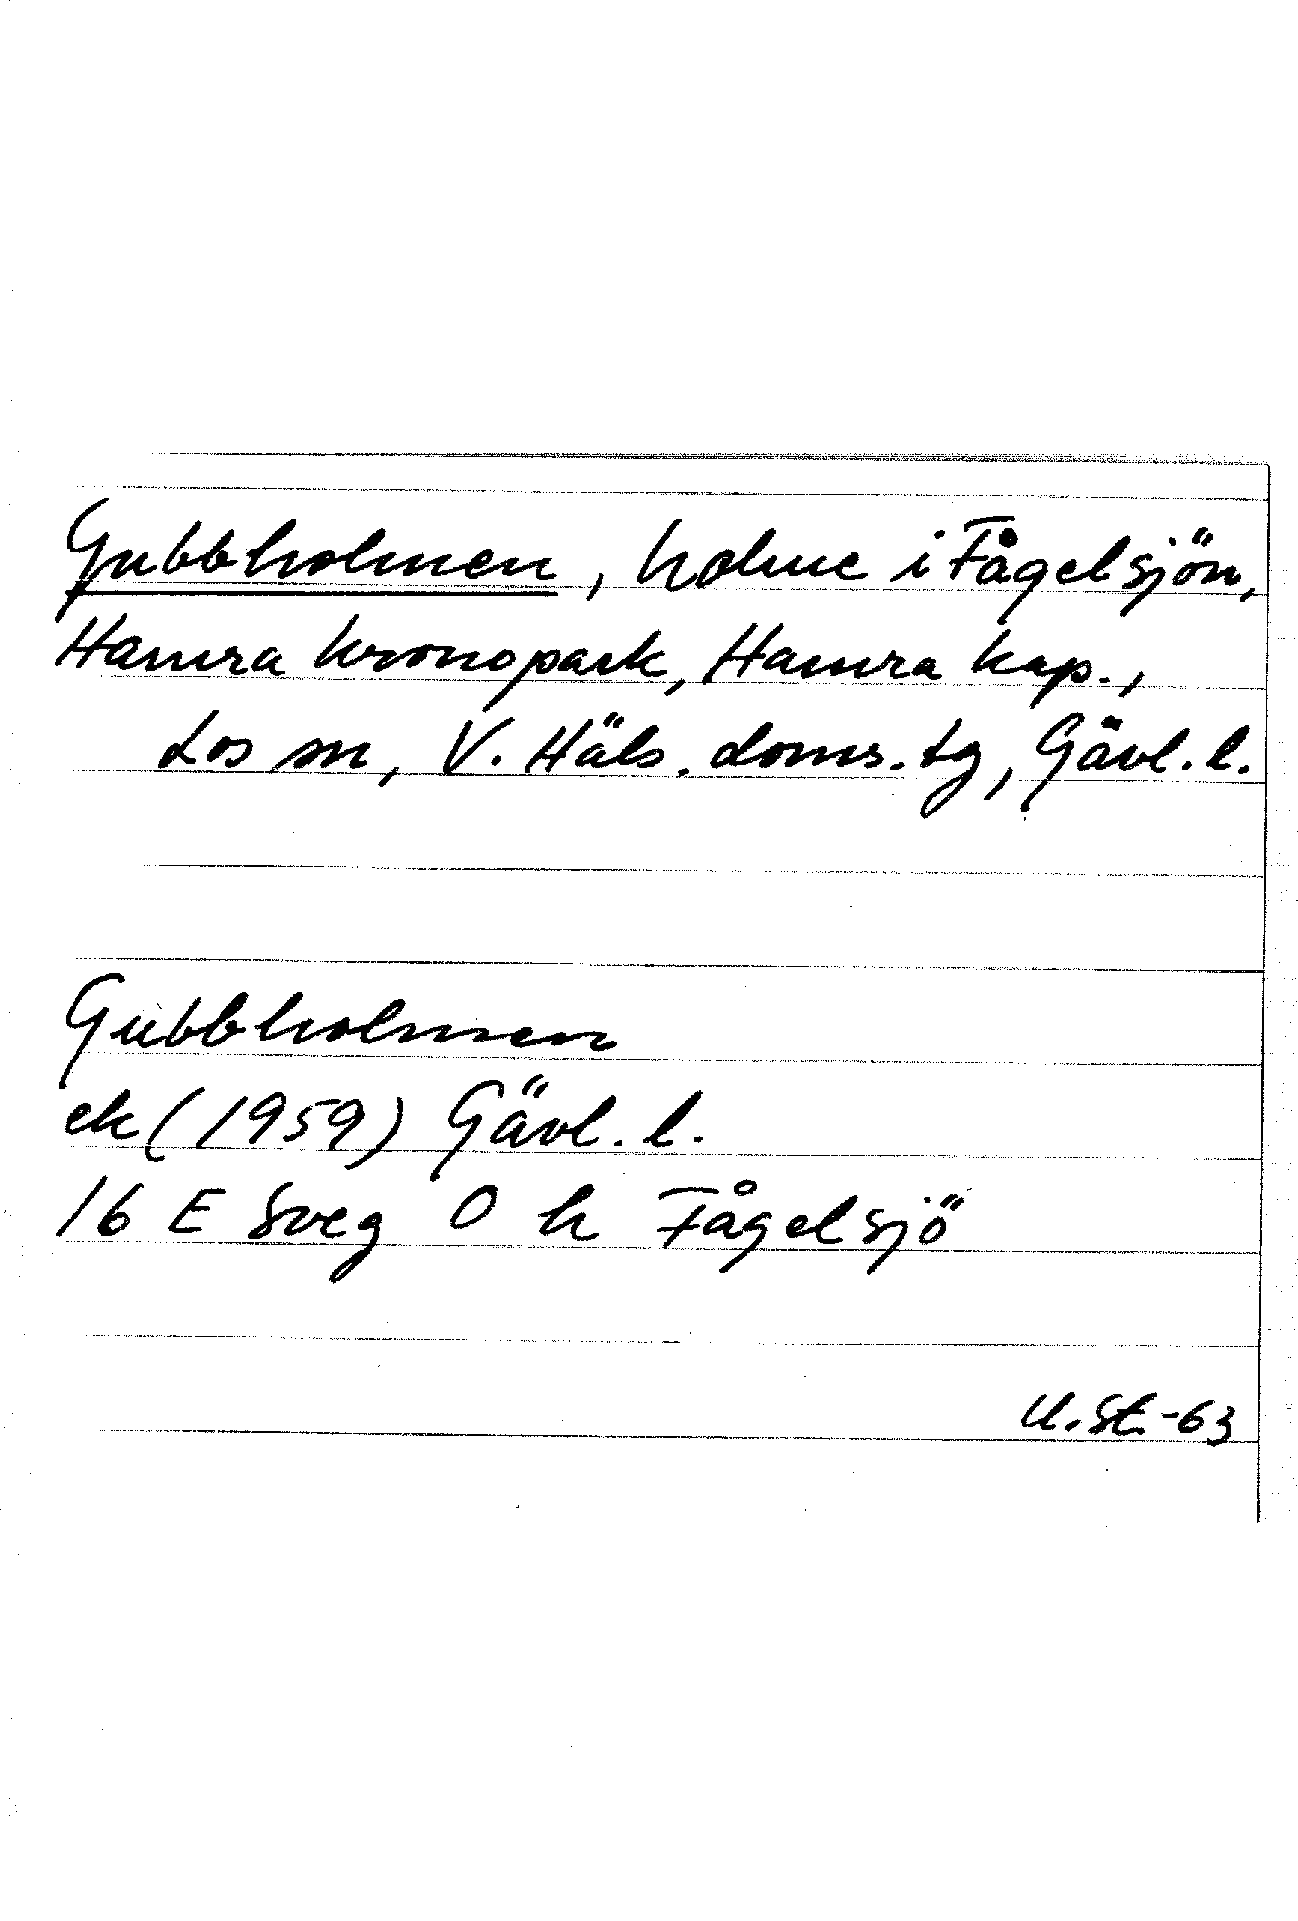 Gubbholmen, holme i Fågelsjön,
Hamra kronopark, Hamra kap.,
Los sn, V. Häls. doms. tg, Gävl. l.
Gubbholmen
ek (1959) Gävl. l.
16 E Sveg O h Fågelsjö
U. St. -63